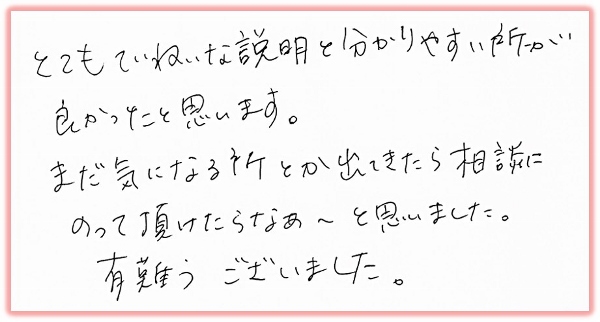 とてもていねいな説明と分かりやすい所が
良かったと思います。
まだ気になる所とか出てきたら相談に
のって頂けたらなぁ～と思いました。
有難うございました。